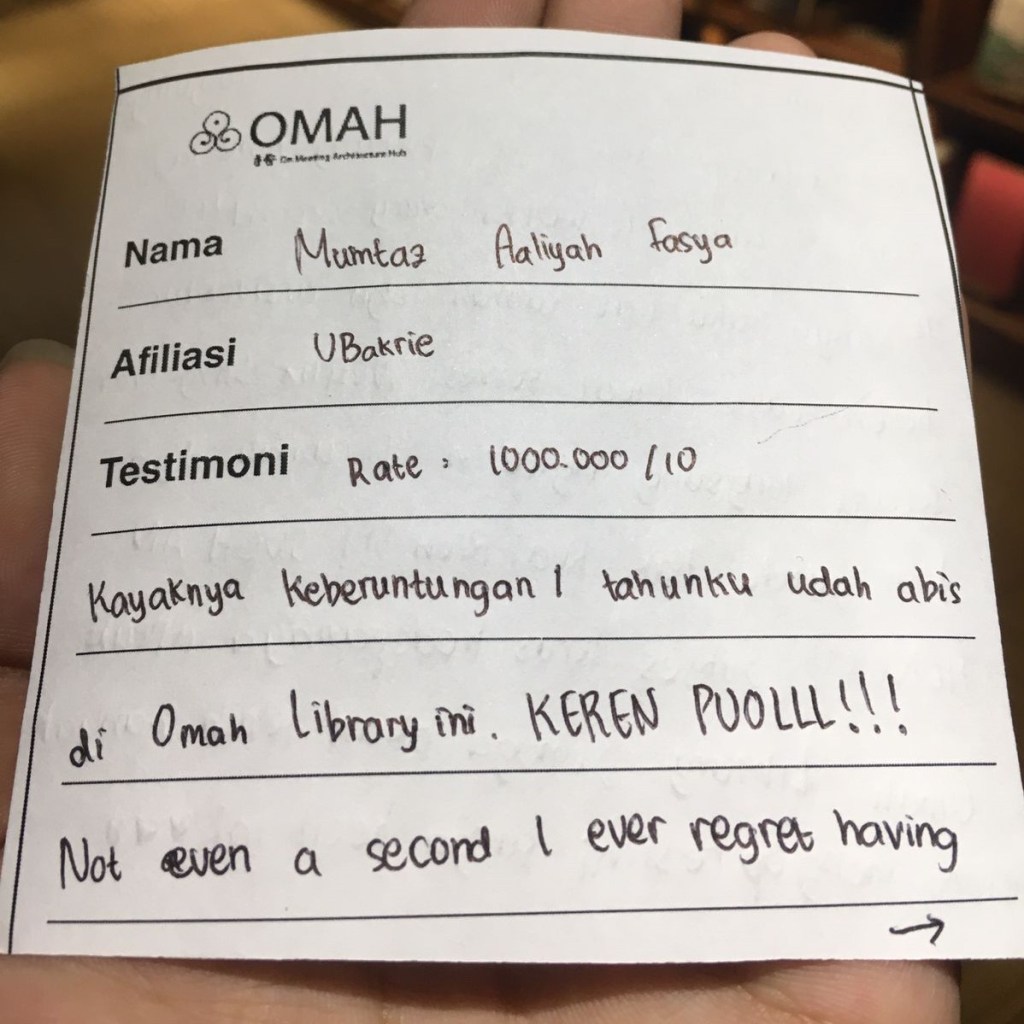 OMAH
On Meeting Architecture Hub
Nama Mumtaz Aaliyah Fasya
Afiliasi UBakrie
Testimoni Rate : 1000.000 / 10
Kayaknya keberuntungan 1 tahunku udah abis
di Omah Library ini. KEREN PUOLLL!!!
Not even a second I ever regret having
→